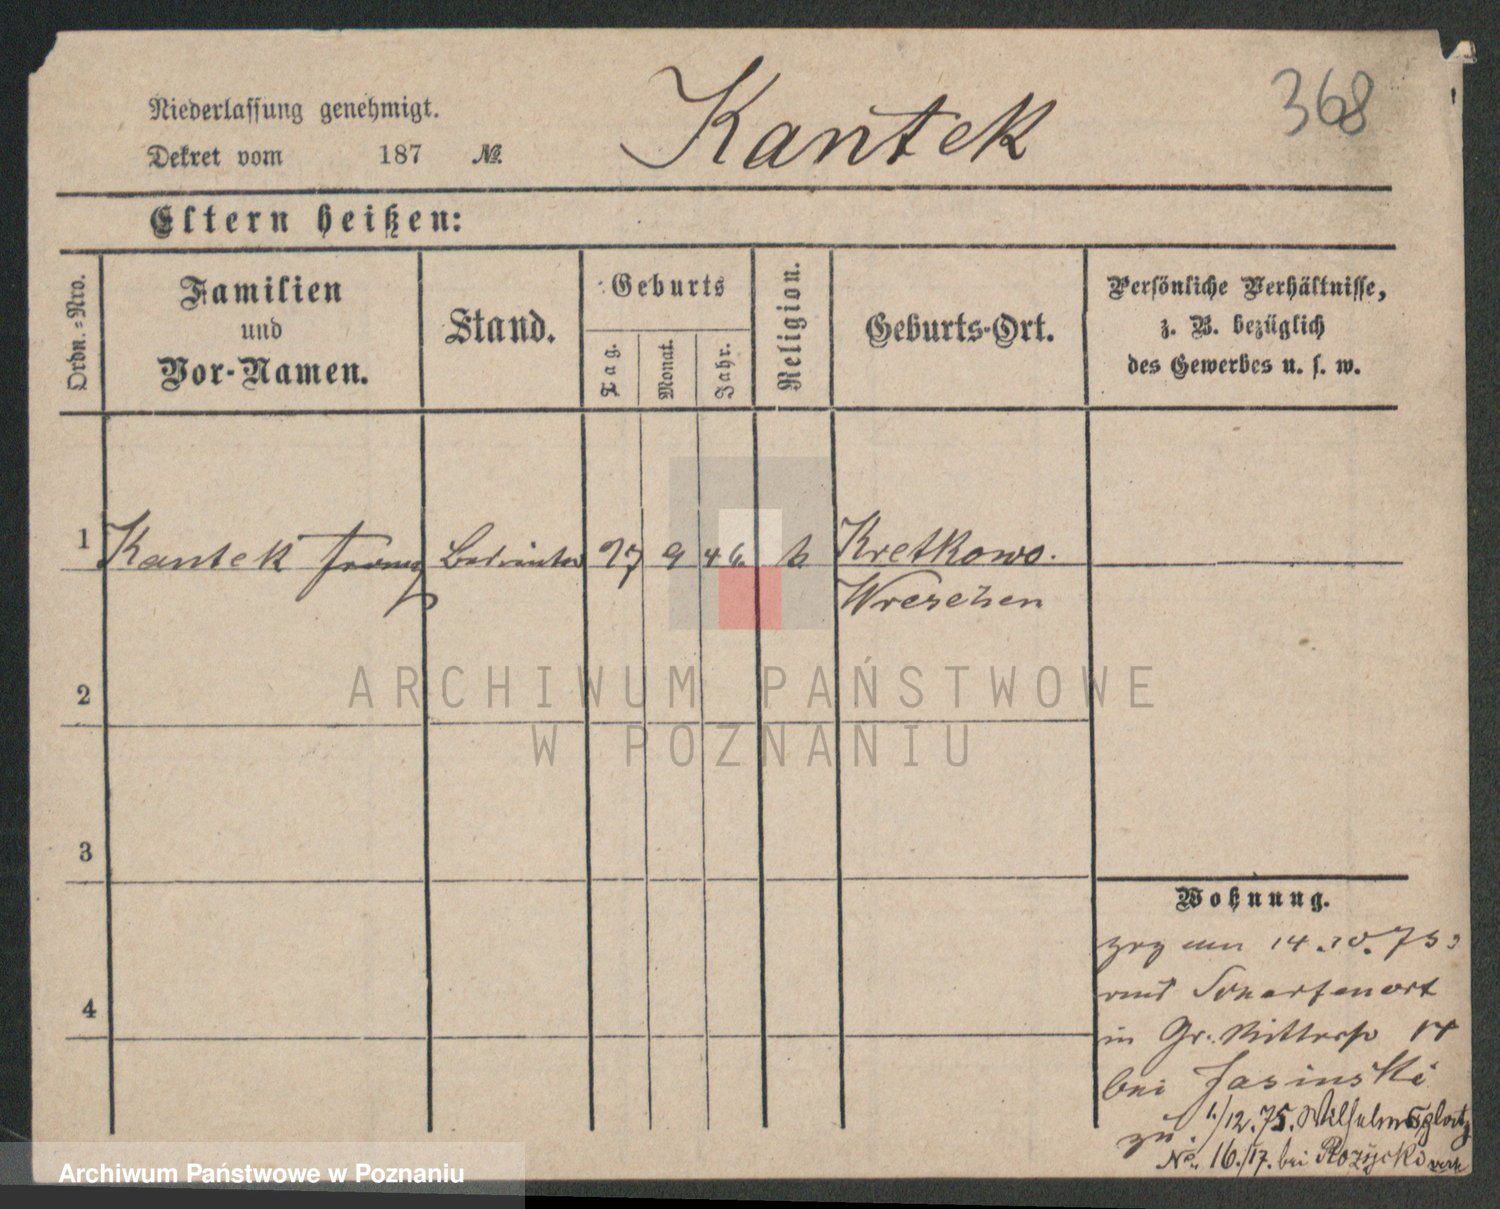 Niederlassung genehmigt.
Dekret vom 187 №
Kantek
368
Eltern heißen:
Ordn.=Nro.
Familien
und
Vor-Namen.
Stand.
Geburts
Tag.
Monat.
Jahr.
Religion.
Geburts-Ort.
Persönliche Verhältnisse,
z. B. bezüglich
des Gewerbes u. s. w.
1 Kantek Franz 27 9 46 k Kretkowo.
Wreschen
2
ARCHIWUM PAŃSTWOWE
W POZNANIU
3
4
Wohnung.
zog am 14.10.75
aus Scharfenort
in Gr. Ritterstr 14
bei Jasinski
zu. 1./12.75. Wilhelmsplatz
No. 16./17. bei Rozycki
Archiwum Państwowe w Poznaniu